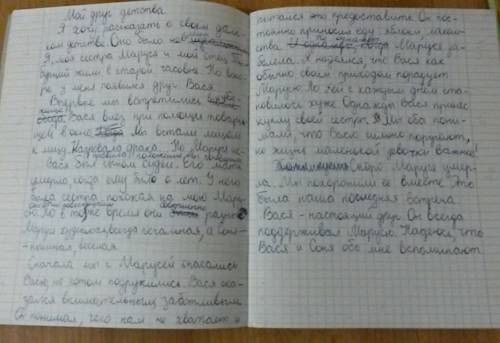 Мой друг детства
Я хочу рассказать о своём далё-
ком детстве. Оно было не
Я, моя сестра Маруся и мой отец Тыб-
урций жили в старой часовне. Но вско-
ре у меня появился друг Вася.
Впервые мы встретились
Вася влез при помощи товари-
щей в окно Мы встали лицом
к лицу. Назревала драка. Но Маруся не
Вася был сыном судьи. Его мать
умерла, когда ему было 6 лет. У него
была сестра, похожая на мою Мару-
сю. Но в то же время они разные
Маруся худенькая, всегда печальная, а Соня -
полная, весёлая.
Сначала мы с Марусей опасались
Васю, но потом подружились. Вася ока-
зался внимательным, заботливым.
Он понимал, чего нам не хватает и
пытался это предоставить. Он пос-
тоянно приносил еду: яблоки, лаком-
ства. Маруся за-
болела. Я надеялся, что Вася как
обычно своим приходом порадует
Марусю. Но ей с каждым днём ста-
новилось хуже. Однажды Вася принёс
куклу своей сестры. Я мы оба пони-
мали, что Васю сильно поругают,
но жизнь маленькой девочки важнее!
Скоро Маруся умер-
ла. Мы похоронили её вместе. Это
была наша последняя встреча.
Вася - настоящий друг. Он всегда
поддерживал Марусю. Надеюсь, что
Вася и Соня обо мне вспоминают.